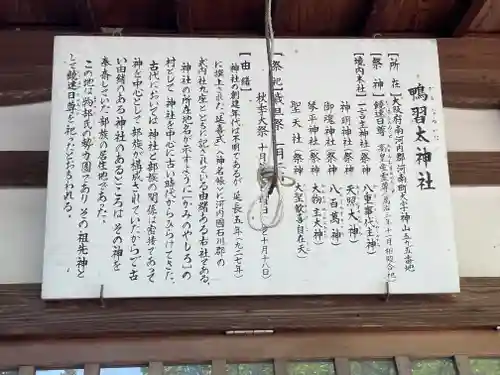 鴨習太神社
【所在】大阪府南河内郡河南町大字神山二三五番地
【祭神】饒速日尊
【境内末社】一言主神社(祭神 八重事代主神)
神明神社(祭神 天照大神)
御魂神社(祭神 八百萬神)
琴平神社(祭神 大物主大神)
聖天社(祭神 大聖歓喜自在天)
【祭祀】歳旦祭 一月一日
秋季大祭 十月
【由緒】
神社の創建年代は不明であるが 延長五年(九二七年)
に撰上された「延喜式」神名帳に河内國石川郡の
式内社九座とともに記されている由緒ある古社である。
神社の所在地名が示すように「かみのやしろ」の
村として 神社を中心に古い時代からひらけてきた。
古代においては 神社と部族の関係は密接であって
神を中心として部族が構成されていたからで 古
い由緒のある神社のあるところは その神を
奉斎していた部族の居住地であった。
この地は物部氏の勢力圏であり その祖先神と
して饒速日尊を祀ったとおもわれる。